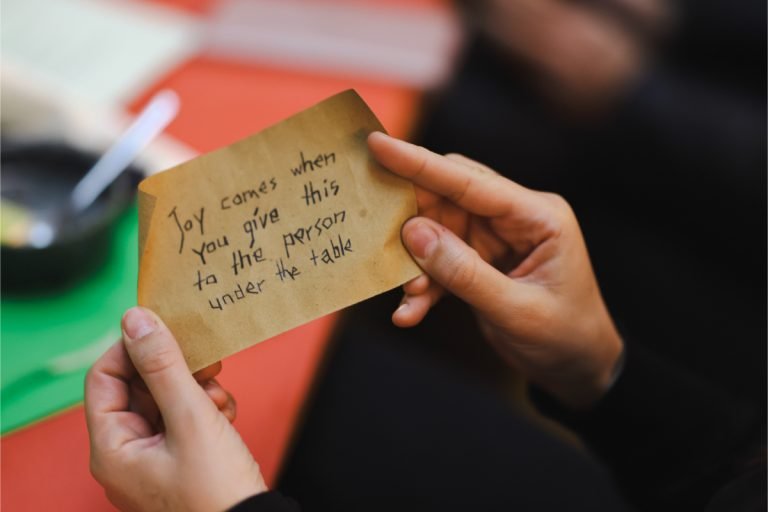 Joy comes when
you give this
to the person
under the table